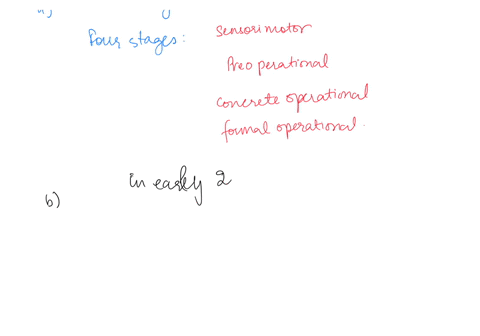 Four stages: Sensorimotor
Preoperational
Concrete operational
formal operational.
in early 2
b)